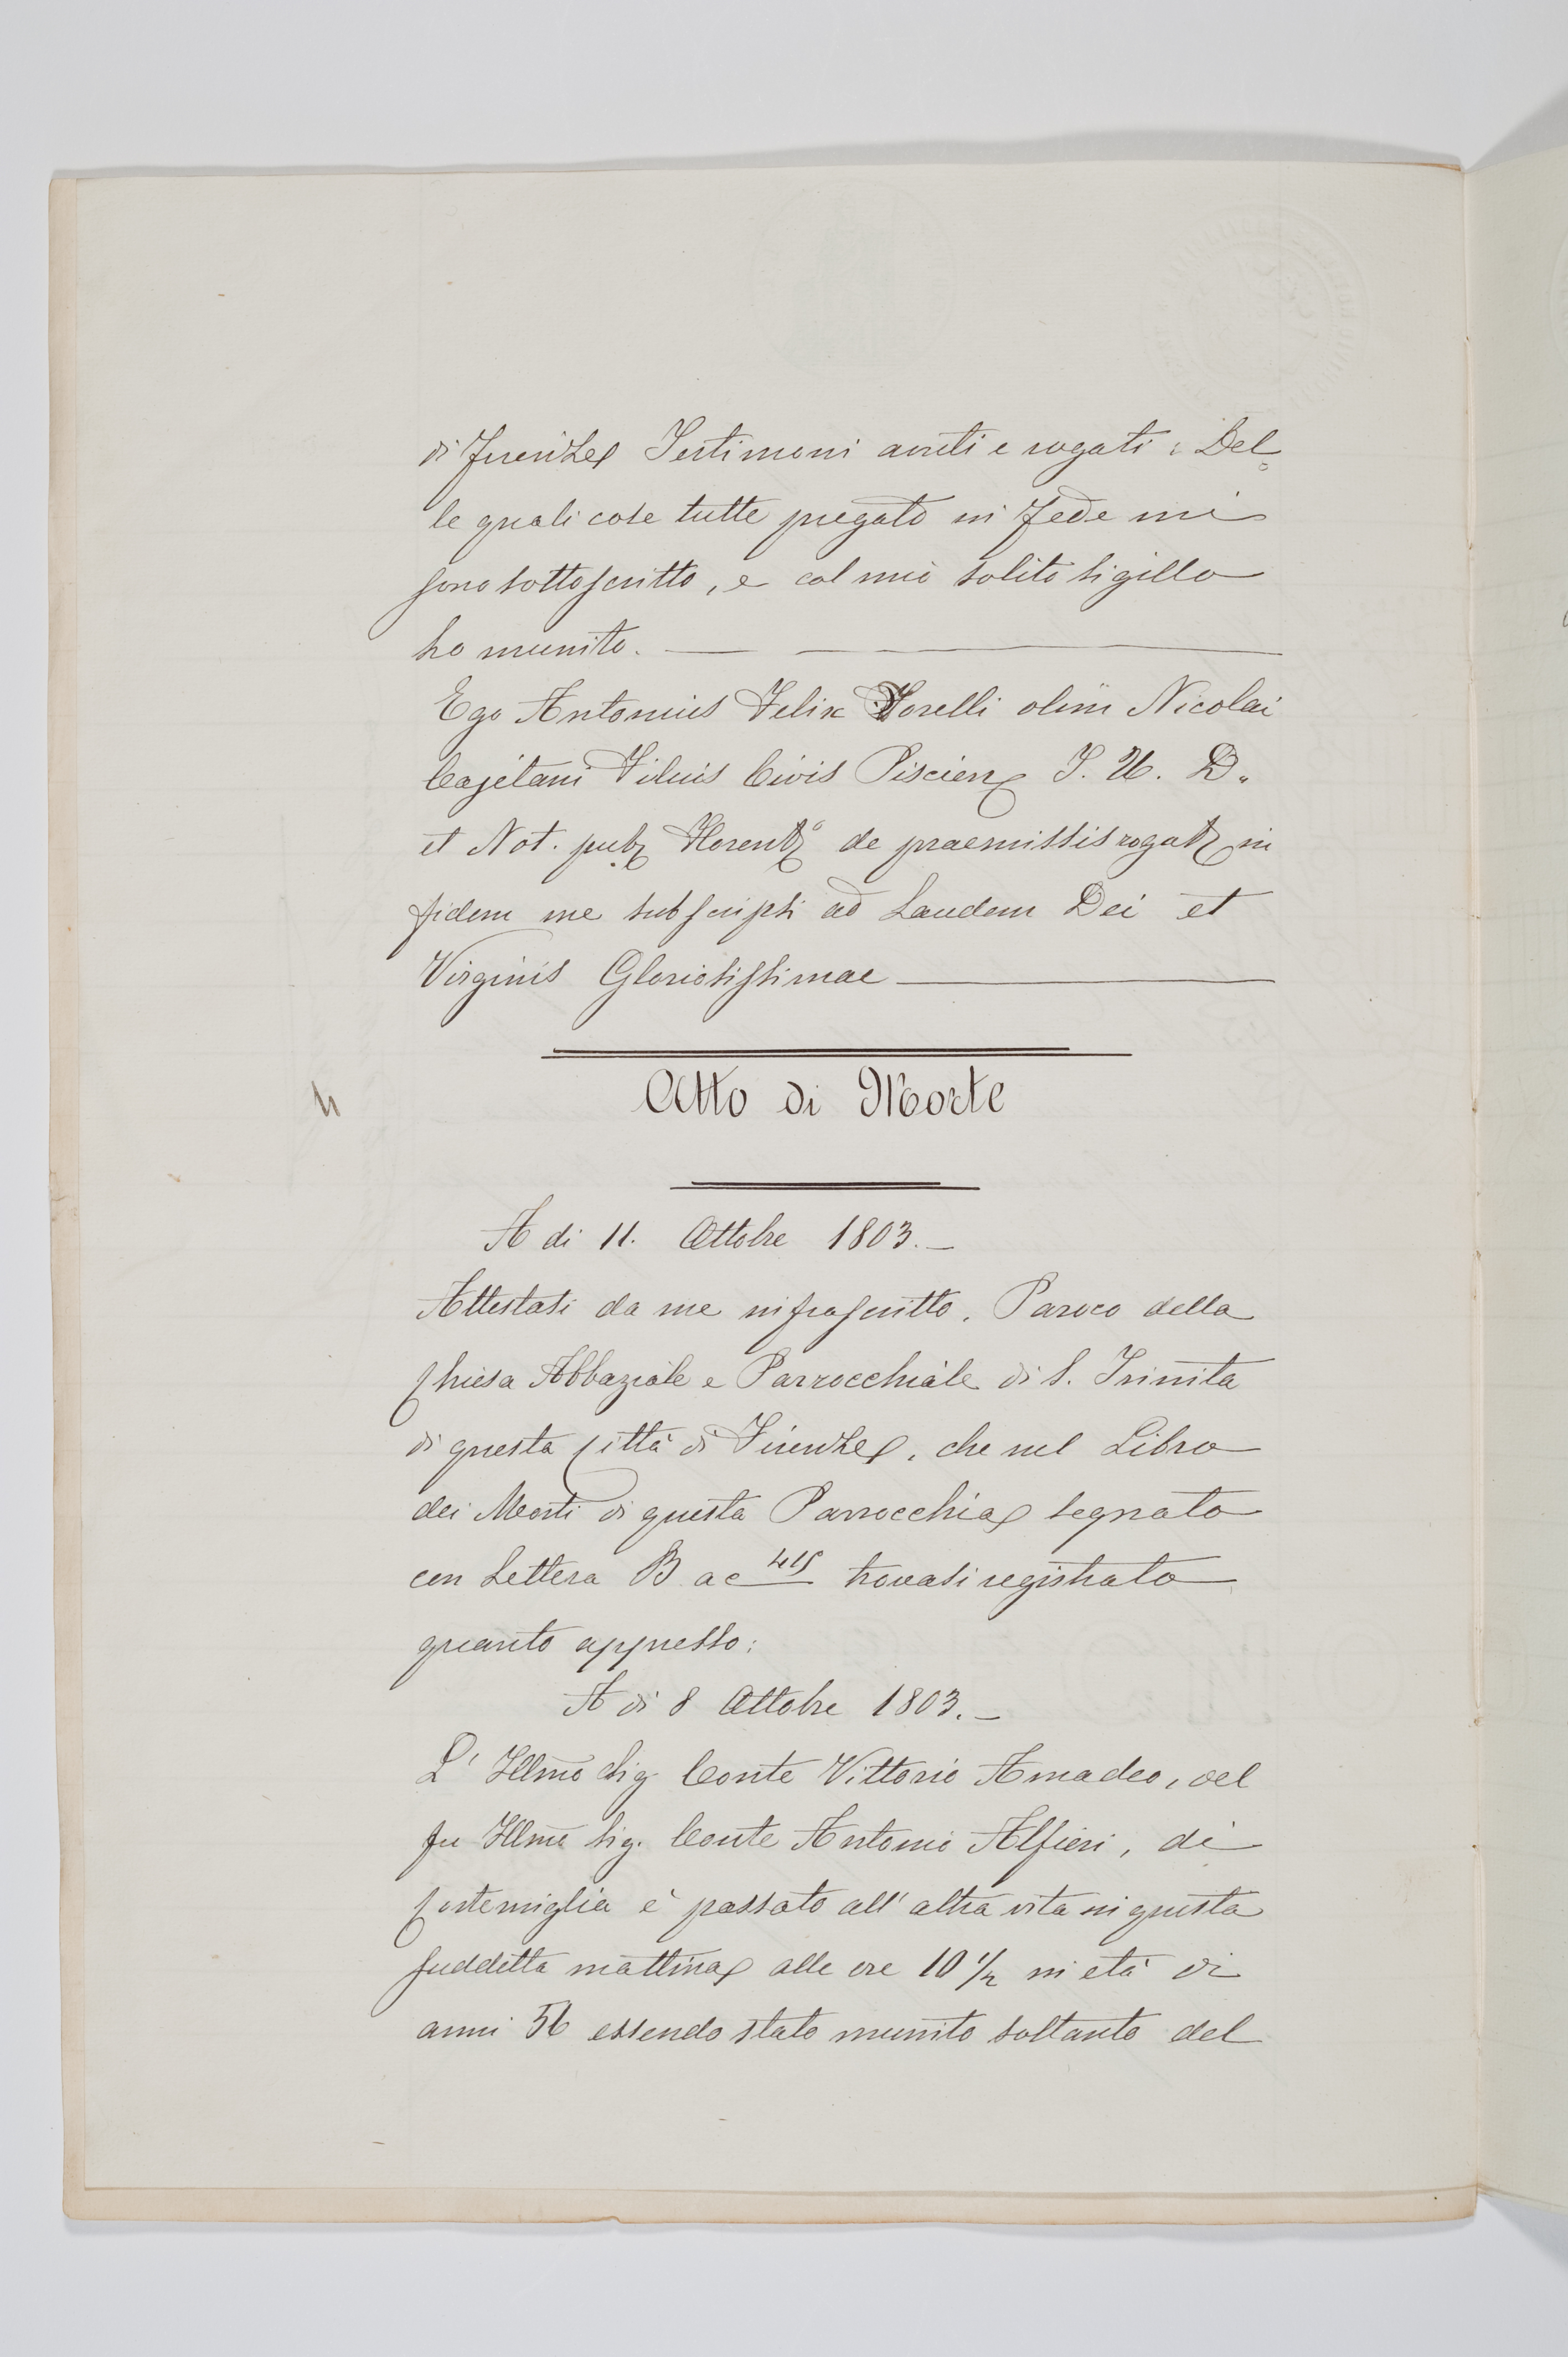 di Firenze Testimoni avuti e rogati: Del=
le quali cose tutte pregato in fede mi
sono sottoscritto, e col mio solito sigillo
ho munito.
Ego Antonius Felix Torelli olim Nicolai
Cajetani Filius Civis Piscien J. U. D.
et Not. pub Florent de praemissis rogat in
fidem me subscripsi ad Laudem Dei et
Virginis Gloriosissimae
Atto di Morte
A di 11. Ottobre 1803.
Attestasi da me infrascritto. Paroco della
Chiesa Abbaziale e Parrocchiale di S. Trinita
di questa Città di Firenze, che nel Libro
dei Morti di questa Parrocchia segnato
con Lettera B a c trovasi registrato
quanto appresso:
A di 8 Ottobre 1803.
L' Illmo Sig Conte Vittorio Amadeo, del
fu Illmo Sig. Conte Antonio Alfieri, di
Cortemiglia è passato all' altra vita in questa
suddetta mattina alle ore 10 1/2 in età di
anni 56 essendo stato munito soltanto del